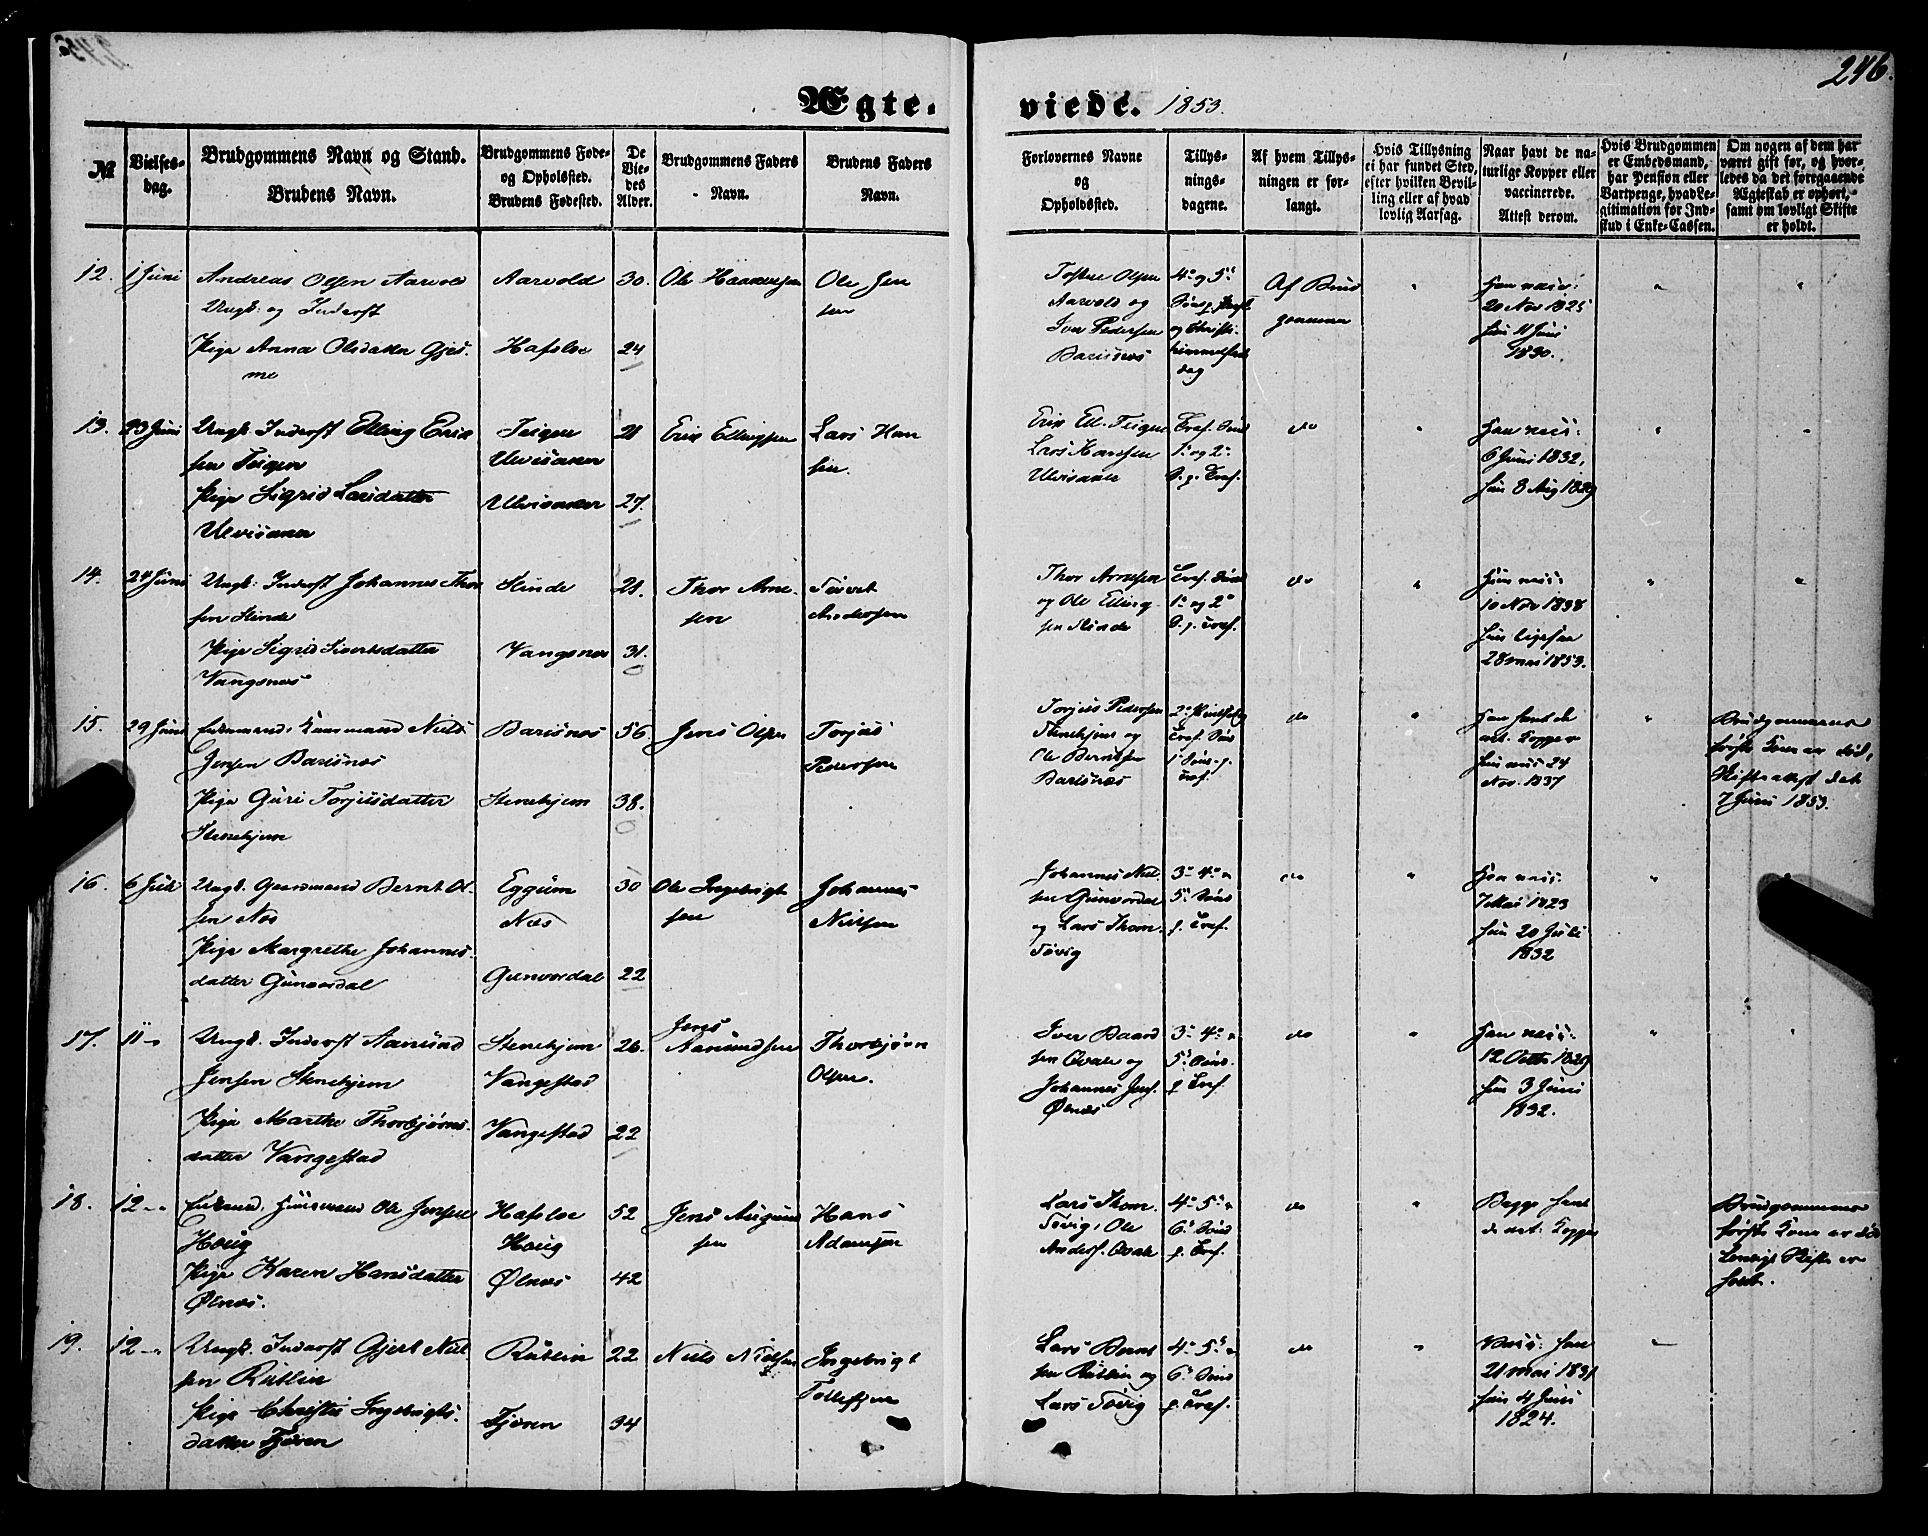 246.
Ægte-
viede. 1853.
№
Vielses-
dag.
Brudgommens Navn og Stand.
Brudens Navn.
Brudgommens Føde-
og Opholdsted.
Brudens Fødested.
De
Vie-
des
Alder.
Brudgommens Faders
Navn.
Brudens Faders
Navn.
Forlovernes Navne
og
Opholdssted.
Tillys-
nings-
dagene.
Af hvem Tillys-
ningen er for-
langt.
Hvis Tillysning
ei har fundet Sted,
efter hvilken Bevil-
ling eller af hvad
lovlig Aarsag.
Naar havt de na-
turlige Kopper eller
vaccinerede.
Attest derom.
Hvis Brudgommen
er Embedsmand,
har Pension eller
Vartpenge, hvad Le-
gitimation for Ind-
skud i Enke-Cassen.
Om nogen af dem har
været gift før, og hvor-
ledes da det foregaaende
Ægteskab er ophørt,
samt om lovligt Skifte
er holdt.
12. 1 Juni
Andreas Olsen Aarvold
Ungk: og Inderst
Pige Anna Olsdatter Gjes-
me
Aarvold
Hafslo
30.
24
Ole
Ole Jen
sen
Olsen
Aarvold og
Iver Pedersen
Barsnes
4de og 5te
og Christi
himmelfarts
dag
Af Brud
gommen
Han vacc:
20 Nov 1825
hun 11 Juni
1830.
13. 23 Juni
Ungk. Inderst Elling Erik
sen Teigen
Pige Sigrid Larsdatter
Ulvisaker
Teigen
Ulvisaker
Ulvisaker
21
27.
Erik Ellingsen
Lars Han
sen.
Erik El. Teigen
Lars Hansen
Ulvisaker
Tref. Sønd
1ste og 2den
S. p. Tref.
do
Han vacc:
6 Juni 1832,
hun 8 Aug 1829
14. 24 Juni
Ungk: Inderst Johannes Thor
sen Slinde
Pige Sigrid Sivertsdatter
Vangsnes
Slinde
Vangsnes
21.
31.
Thor Arne-
sen
Sivert
Andersen
Thor Arnesen
og Ole Elling-
sen Slinde
Tref. Sønd
1ste og 2den
S. p. Tref.
do
Han vacc:
10 Nov 1838
hun ligesaa
28 mai 1853.
15. 29 Juni
Enkemand, Huusmand Niels
Jensen Barsnes
Pige Guri Torjusdatter
Stenehjem
Barsnes
Stenehjem
56.
38.
Jens Olsen
Torjus
Pedersen
Torjus Pedersen
Stenehjem og
Ole Berntsen
Barsnes
Tref. Sønd
1ste Sønd. p.
Tref.
do
Han havt de
nat. Kopper
hun vacc 24
Nov. 1837
Brudgommens
første Kone er død,
Skifteattest dat
7 Juni 1853.
16. 6 Juli
Ungk. Gaardmand Bernt Ol-
sen Næs
Pige Margrethe Johannes-
datter Gunvordal
Eggum
Næs
Gunvordal
30
22
Ole Ingebrigt
sen
Johannes
Nielsen
Johannes Niel-
sen Gunvordal
og Lars Thom.
Tøvig
3de 4de
5te Sønd
p. Tref.
do
Han vacc:
7 Mai 1823
hun 20 Juli
1832
17. 11 "
Ungk. Inderst Aamund
Jensen Stenehjem
Pige Marthe Thorbjørns-
datter Vangestad
Stenehjem
Vangestad
Vangestad
26.
22
Jens
Aamundsen
Thorbjørn
Olsen.
Iver Baard
sen Qvale og
Johannes
Ølnæs
3de 4de
5te Sønd.
p Tref.
do
Han vacc:
12 Octb. 1829
hun 3 Juni
1832.
18. 12 "
Enkemd. Huusmand Ole Jensen
Houg
Pige Karen Hansdatter
Ølnæs.
Hafslo
Houg
Ølnæs
52
42
Jens
sen
Hans
Adamsen
Lars Thom.
Tøvig, Ole
Anders. Qvale
4de 5te
6te Sønd
p. Tref.
do
Begge havt
de nat. Kopper
Brudgommens
første Kone er død
Lovligt Skifte er
holdt.
19. 12 "
Ungk. Inderst Gjert Niel
sen Rutlin
Pige Christi Ingebrigts-
datter Fjøren
Rutlin
Fjøren
22
34
Niels Nielsen
Ingebrigt
Tollefsen
Lars Bernt
sen Rutlin og
Lars Tøvig
4de 5te
6te Sønd
p Tref.
do
Vacc: han
21 mai 1831
hun 4 Juni
1824.